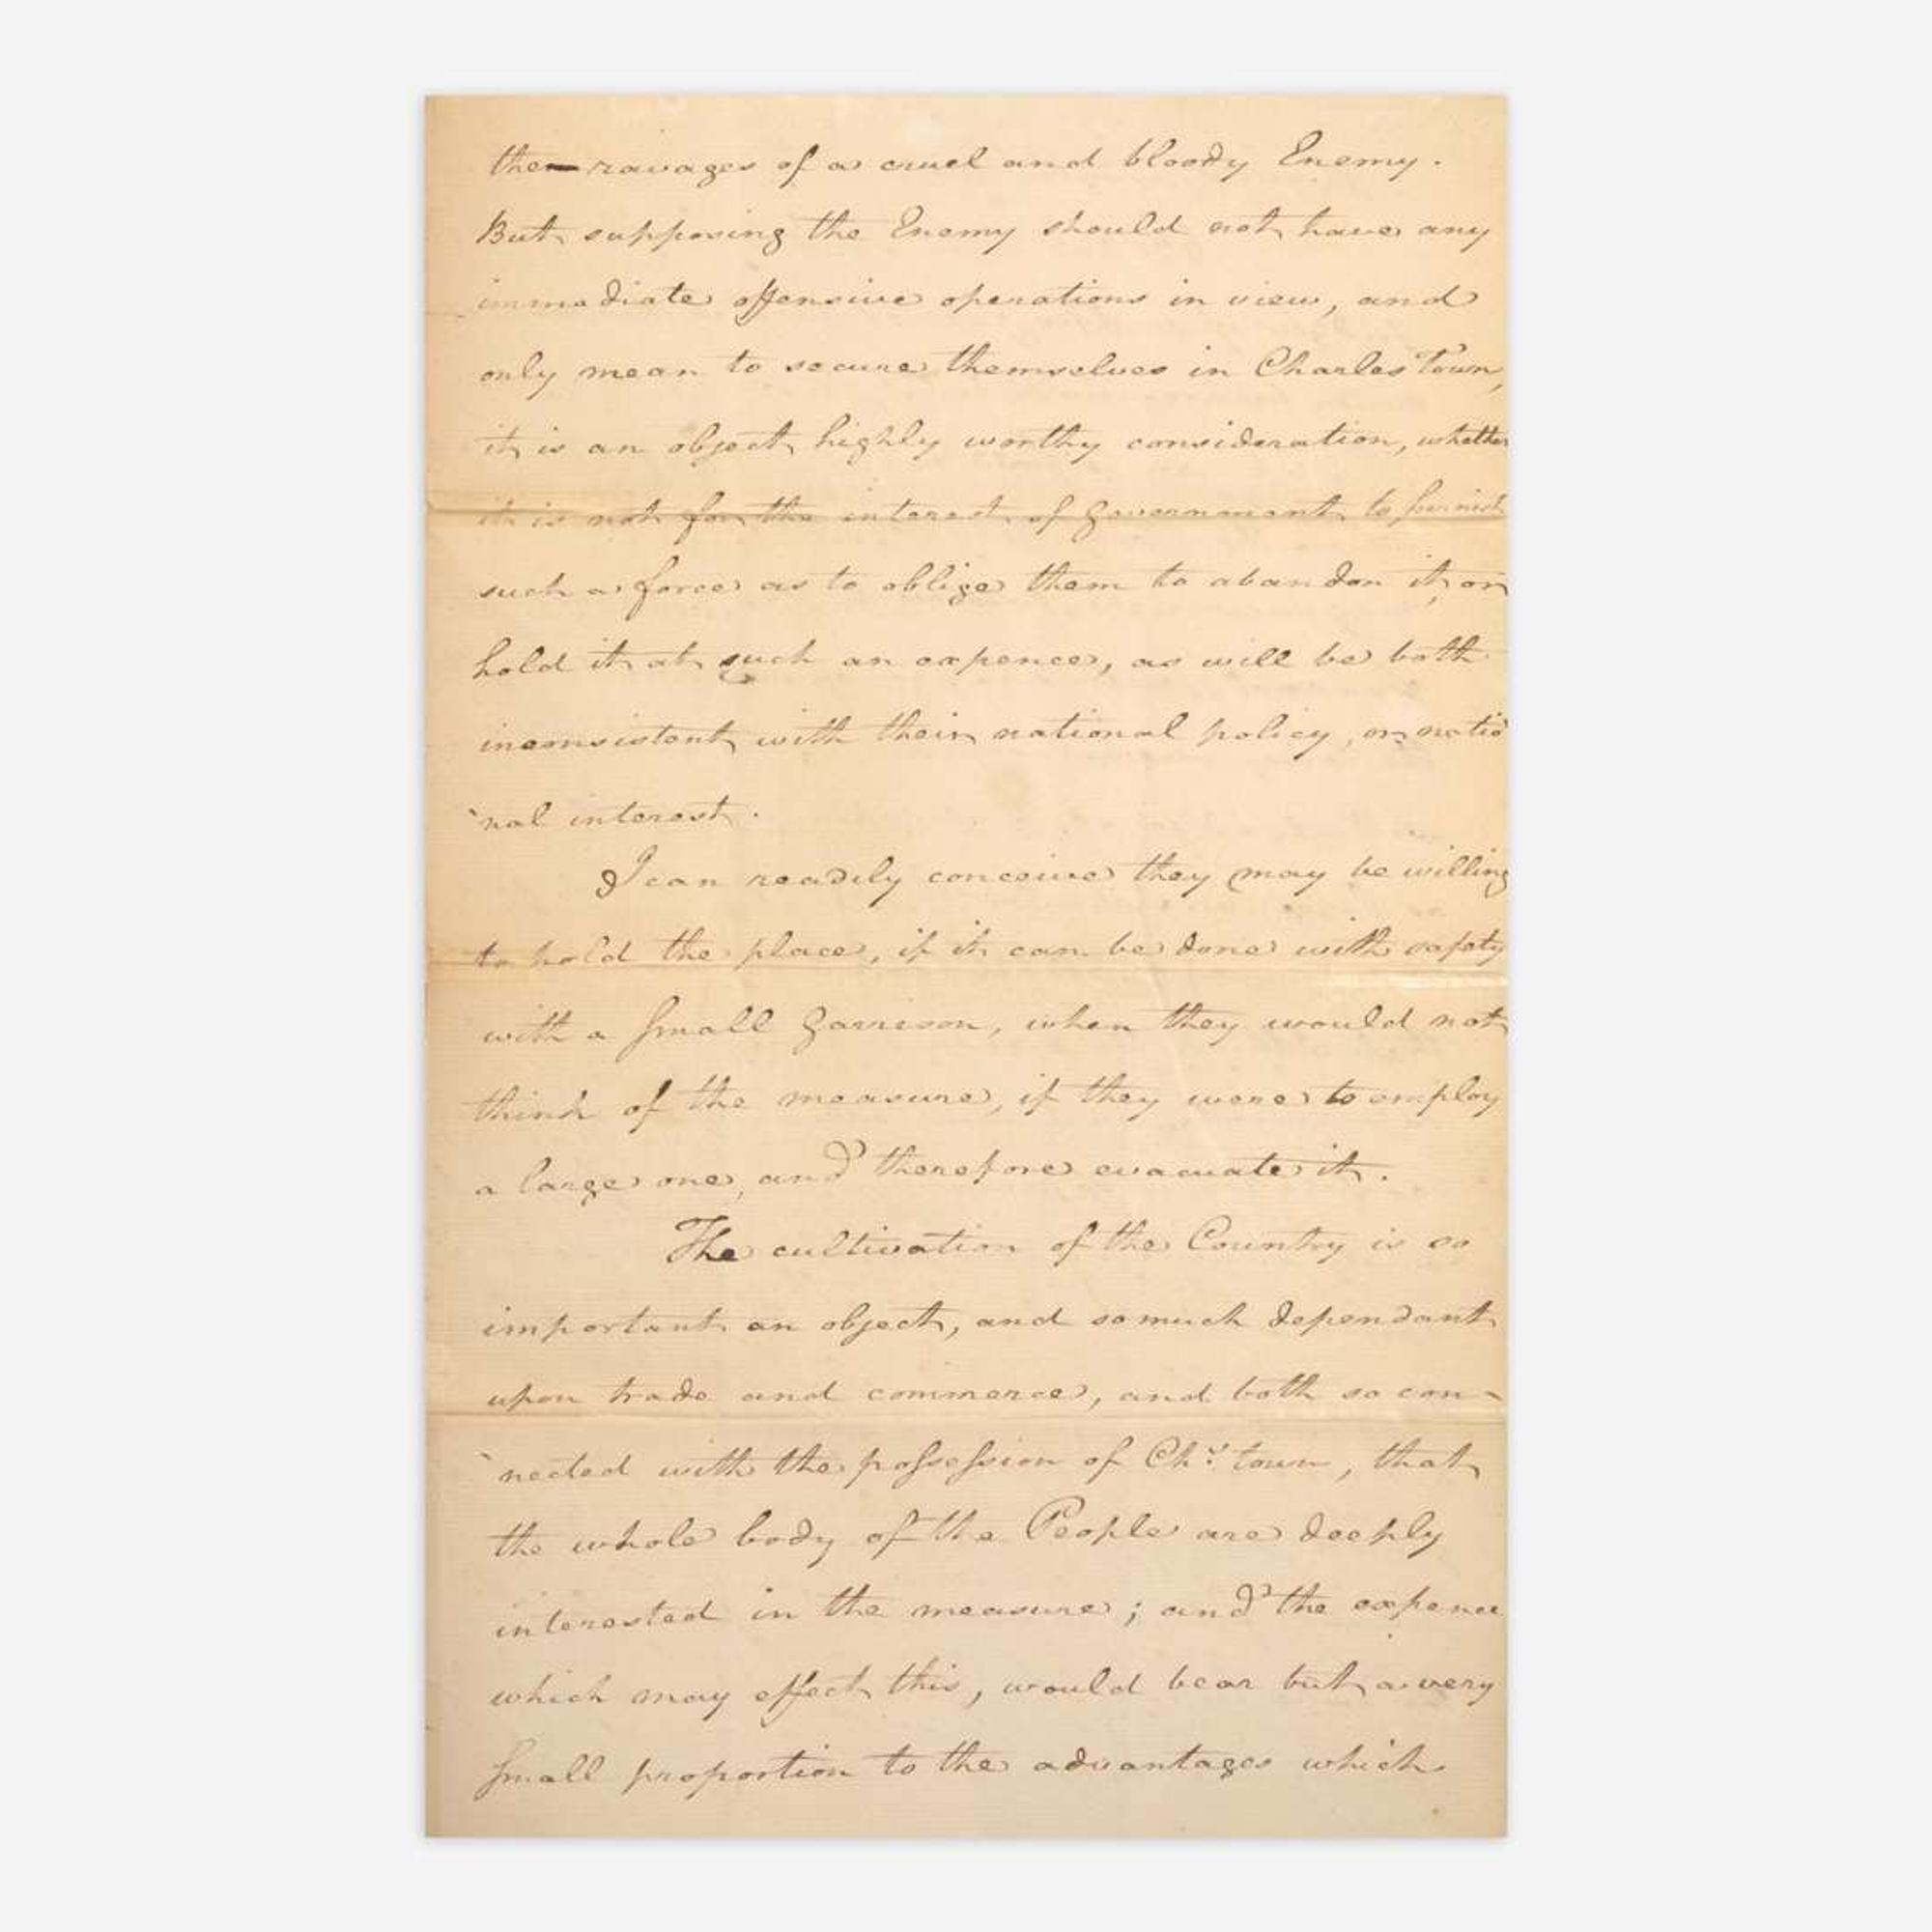 the ravages of a cruel and bloody Enemy.
But supposing the Enemy should not have any
immediate offensive operations in view, and
only mean to secure themselves in Charles Town,
it is an object highly worthy consideration, whether
it is not for the interest of Government to furnish
such a force as to oblige them to abandon it, or
hold it at such an expence, as will be both
inconsistent with their national policy, or natio
`nal interest.
I can readily conceive they may be willing
to hold the place, if it can be done with safety
with a small Garrison, when they would not
think of the measure, if they were to employ
a large one, and therefore evacuate it.
The cultivation of the Country is so
important an object, and so much dependant
upon trade and commerce, and both so con-
`nected with the possession of Chs. town, that
the whole body of the People are deeply
interested in the measure; and the expence
which may effect this, would bear but a very
small proportion to the advantages which